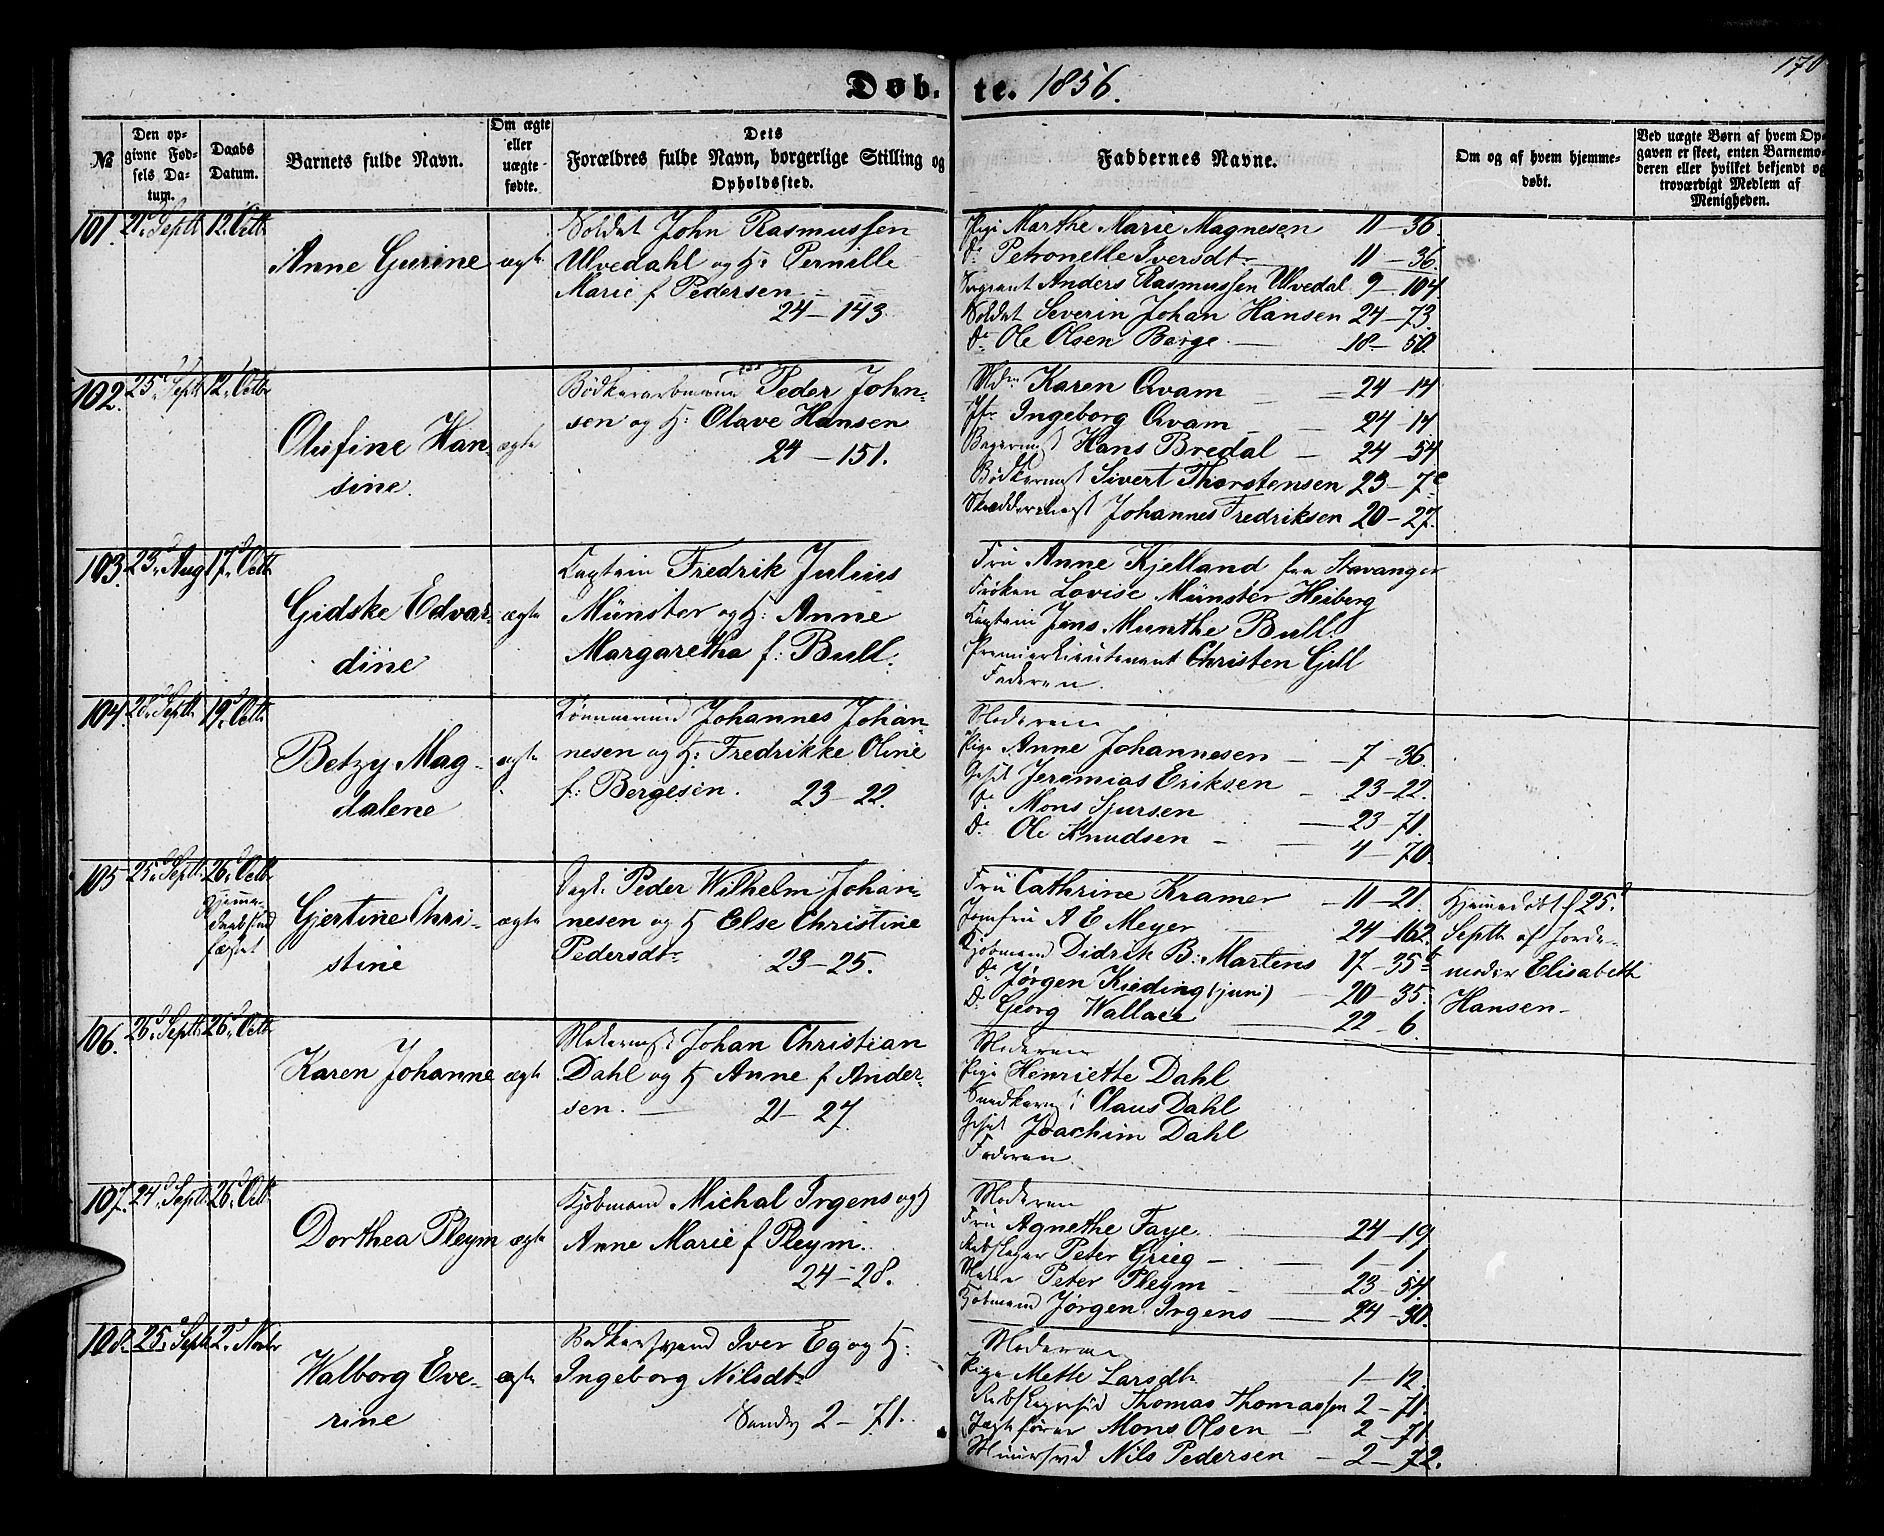 170
Døb. te. 1856.
№
Den opgivne Fødsels Datum.
Daabs Datum.
Barnets fulde Navn.
Om ægte eller uægte fødte.
Dets Forældres fulde Navn, borgerlige Stilling og Opholdssted.
Faddernes Navne.
Om og af hvem hjemmedøbt.
Ved uægte Børn af hvem Opgaven er skeet, enten Barnemoderen eller hvilket bekjendt og troværdigt Medlem af Menigheden.
101. 21d. Septb. 12d. Octb.
Anne Gurine ægte
Soldat John Rasmussen
Ulvedahl og H: Pernille
Marie f Pedersen
24 – 143
Pige Marthe Marie Magnesen 11 – 36.
Do. Petronelle Iversdtr 11 – 36.
Sergeant Anders Rasmussen Ulvedal 9 – 104
Soldat Severin Johan Hansen 24 – 73
Do. Ole Olsen Børge 18 – 50.
102. 25d. Septb. 12d. Octbr
Olufine Han-
sine. ægte
Peder John-
sen og H: Olave Hansen
24 – 151.
Mdm Karen Qvam 24 – 14
Jfr Ingeborg Qvam 24 – 14
Bagermest Hans Bredal 24 – 54
Bødkermest Sivert Thorstensen 23 – 7c
Skreddermest Johannes Fredriksen 20 – 27.
103. 23d. Aug 17d. Octb
Gidske Edvar-
dine ægte
Captein Fredrik Julius
Münster og H: Anne
Margaretha f: Bull.
Fru Anne Kjelland fra Stavanger
Frøken Lovise Münster Heiberg
Captein Jens Munthe Bull
Premierlieutenant Christen Gill
Faderen.
104. 28d. Septb. 19d. Octb
Betzy Mag-
dalene ægte
Tømmermd Johannes Johan-
nesen og H: Fredrikke Oline
f: Bergesen. 23 – 22.
Moderen
Pige Anne Johannesen 7 – 36.
Gesel Jeremias Eriksen 23 – 22.
do Mons Sjursen 23 – 71.
Do. Ole Knudsen 4 – 70.
105 25d. Septb. 26d. Octb.
Hjemme-
daabsfæstet
Gjertine Chri-
stine ægte
Peder Wilhelm Johan-
nesen og H Else Christine
Pedersdtr 23 – 25.
Fru Cathrine Kramer 11 – 21
Jomfru A E Meyer 24 – 162.
Kjøbmand Didrik B: Martens 17 – 35
do Jørgen Kieding (juni) 20 – 35.
Do. Georg Wallace 22 – 6
Hjemmedøbt d 25d
Septb. af Jorde-
moder Elisabeth
Hansen
106. 26d. Septb. 26d. Octb
Karen Johanne ægte
Malermest Johan Christian
Dahl og H Anne f Ander-
sen. 21 – 27.
Moderen
Pige Henriette Dahl
Claus Dahl
Gesel Joachim Dahl
Faderen
107. 24d. Septb. 26d. Octb
Dorthea Pleym ægte
Kjøbmand Michal Irgens og H
Anne Marie f Pleym.
24 – 28.
Moderen
Fru Agnethe Faye 24 – 19
Rebslager Peter Grieg 1 – 1
Peter Pleym 23 – 54
Kjøbmand Jørgen Irgens 24 – 30.
108. 25d. Septb 2d. Novbr
Walborg Eve-
rine ægte
Bødkersvend Iver Eg og H:
Ingeborg Nilsdtr
2 – 71.
Moderen
Pige Mette Larsdtr 1 – 12.
Thomas Thomassen 2 – 71.
Jægtfører Mons Olsen 2 – 71
Nils Pedersen 2 – 72.